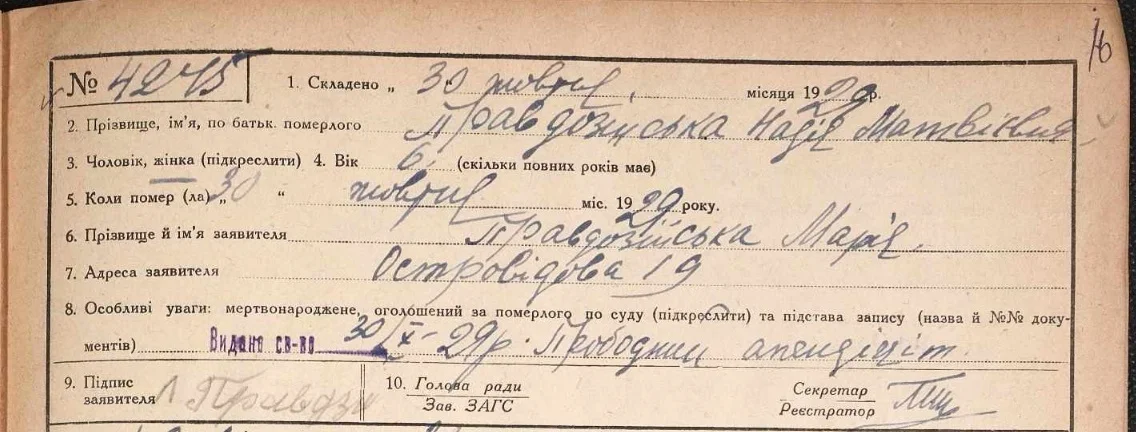 16
№ 4275 1. Складено „ 30 " жовтня місяця 1929 р.
2. Прізвище, ім'я, по батьк. померлого Правдозійська Надія Матвієвна
3. Чоловік, жінка (підкреслити) 4. Вік 6 (скільки повних років має)
5. Коли помер (ла) „ 30 " жовтня міс. 1929 року.
6. Прізвище й ім'я заявителя Правдозійська Марія.
7. Адреса заявителя Островідова 19
8. Особливі уваги: мертвонароджене, оголошений за померлого по суду (підкреслити) та підстава запису (назва й №№ доку-
ментів) Видано св-во 30/X-29р. Прободний апендіцит.
9. Підпис 10. Голова ради Секретар
заявителя Правдзи Зав. ЗАГС Реєстратор